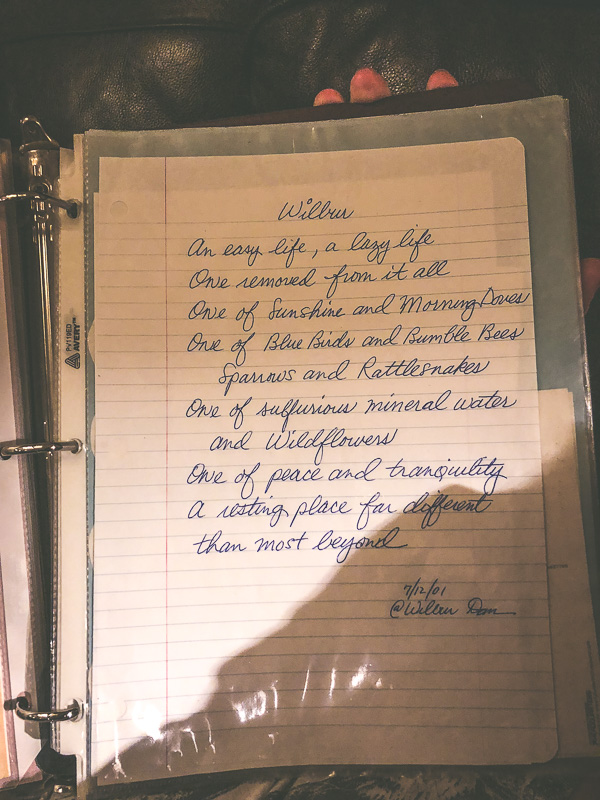 Wilbur
An easy life, a lazy life
One removed from it all
One of Sunshine and Morning Doves
One of Blue Birds and Bumble Bees
Sparrows and Rattlesnakes
One of sulfurious mineral water
and Wildflowers
One of peace and tranquility
a resting place far different
than most beyond
7/12/01
@Wilbur Dam
PV119ED
AVERY™